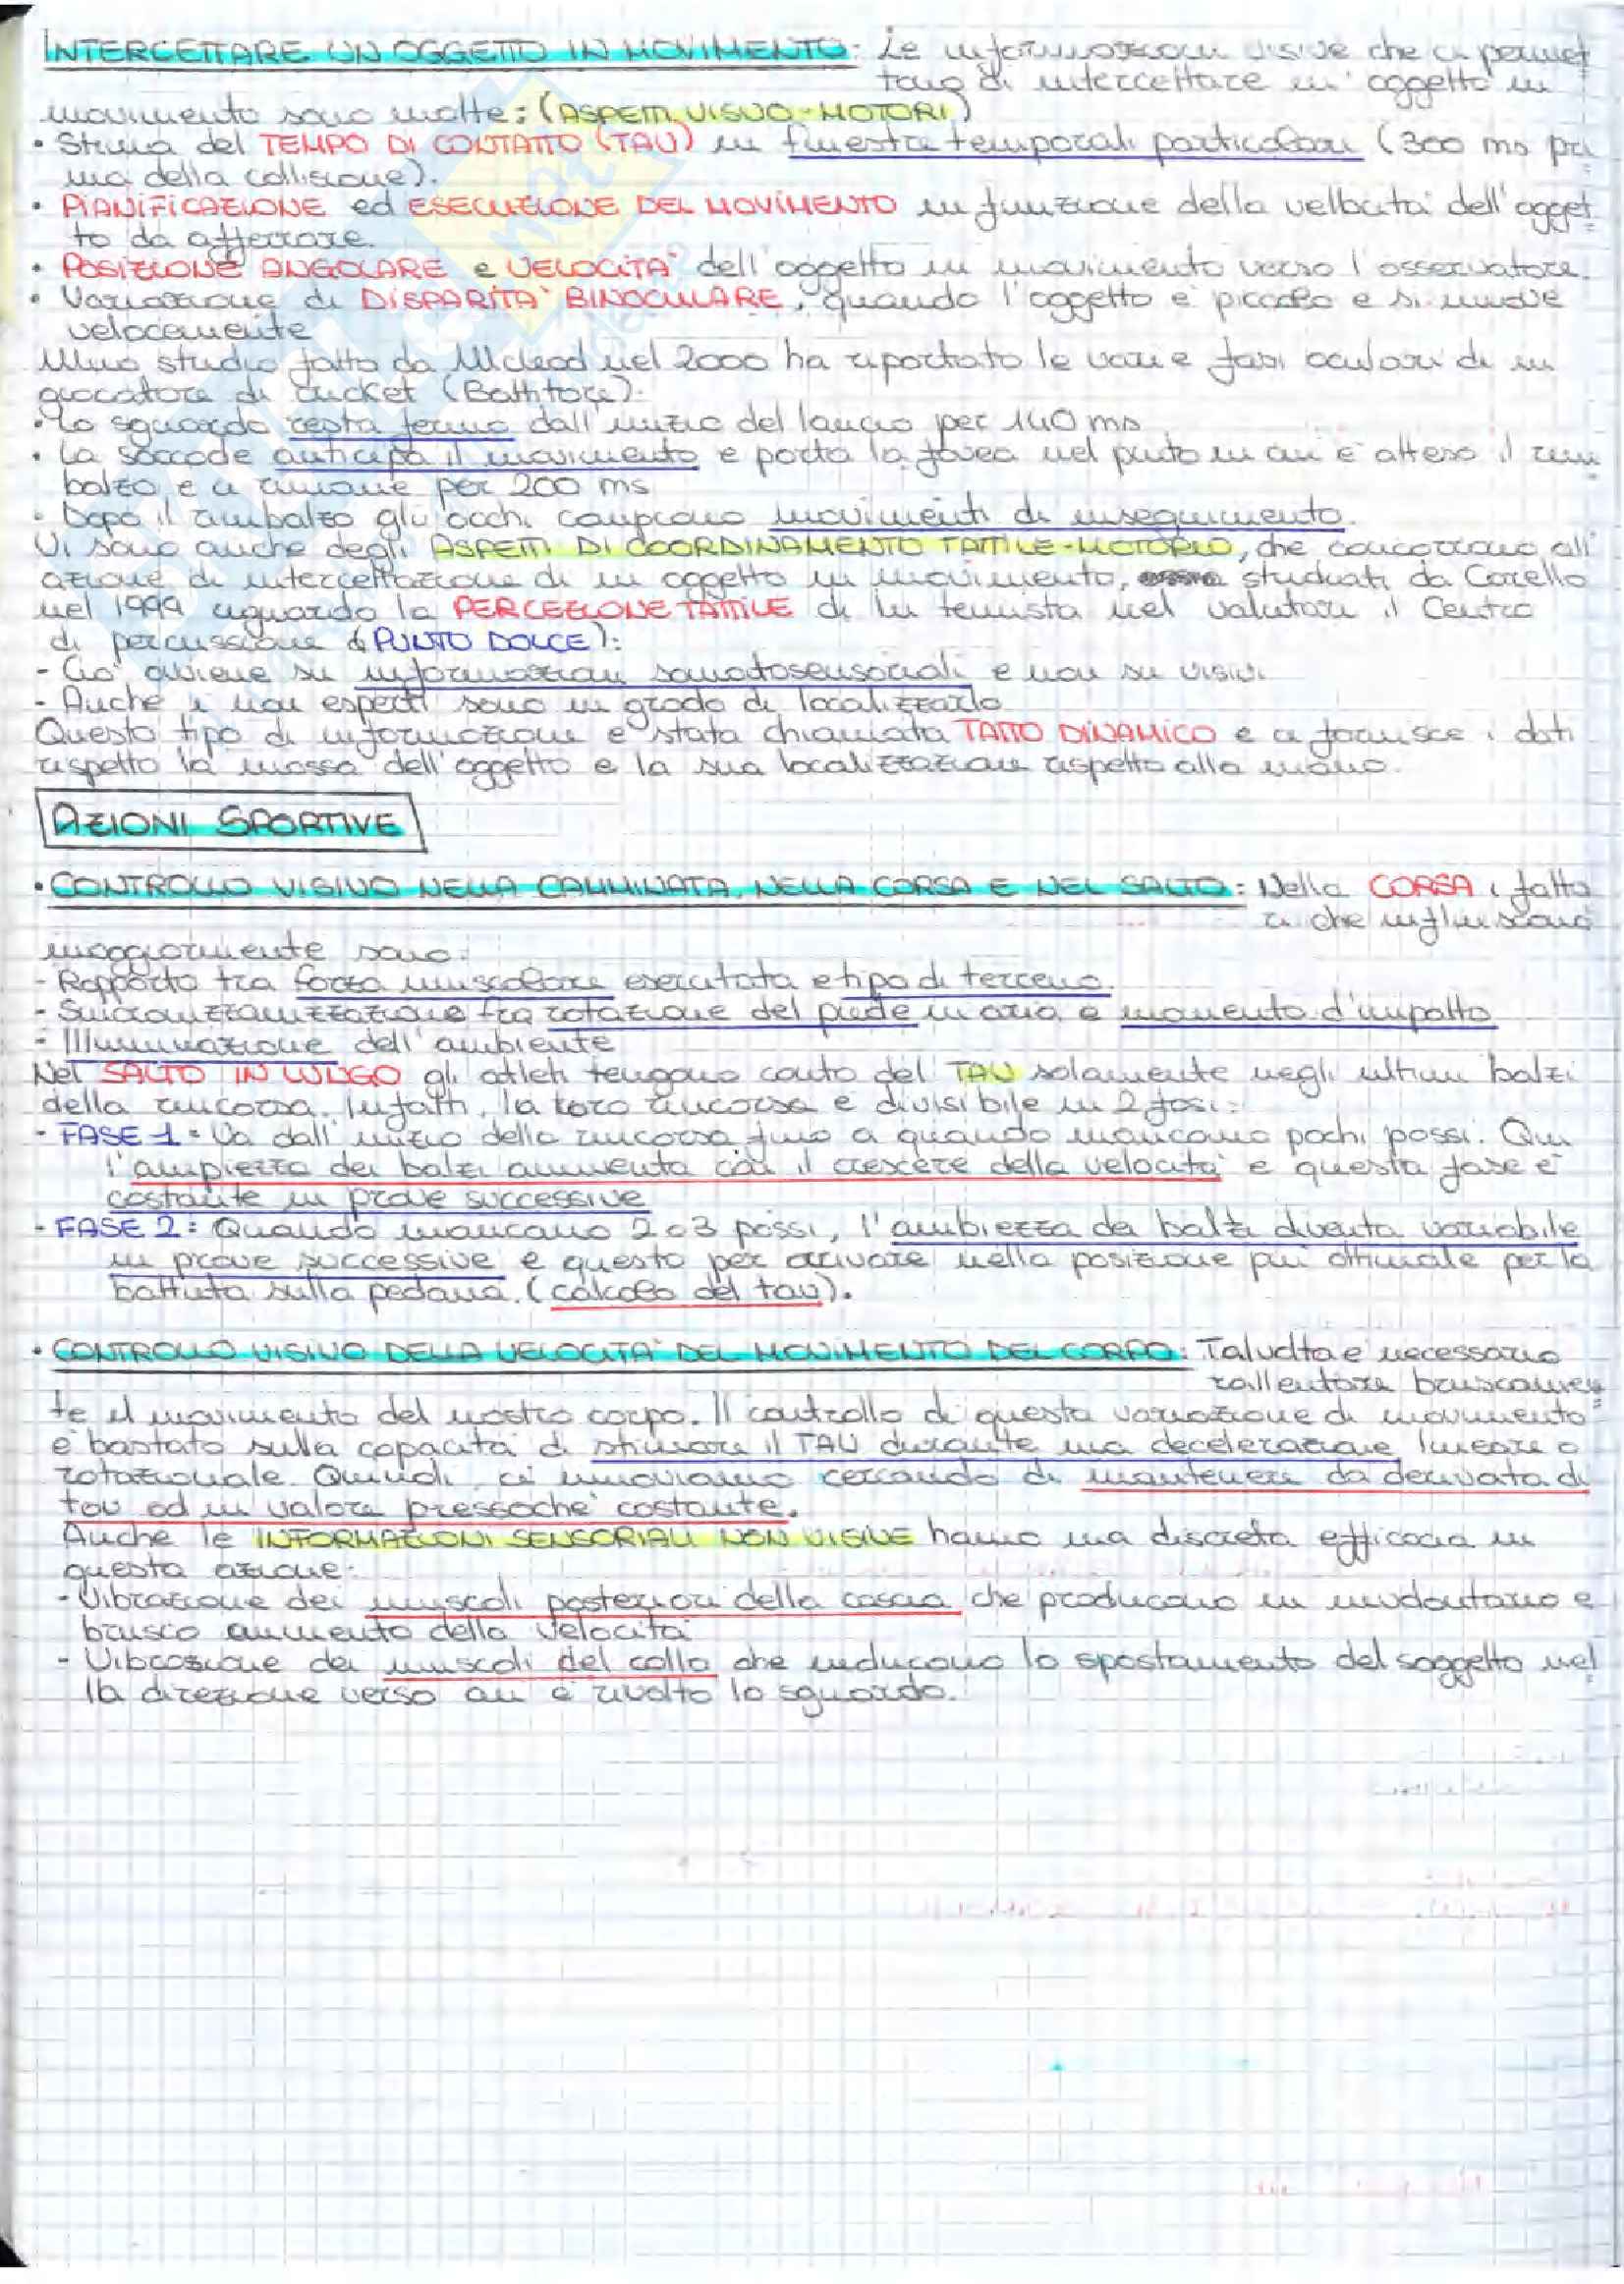 INTERCETTARE UN OGGETTO IN MOVIMENTO: Le informazioni visive che ci permet
tono di intercettare un' oggetto in
movimento sono molte: (ASPETTI VISUO-MOTORI)
• Stima del TEMPO DI CONTATTO (TAU) in finestre temporali particolari (300 ms pri
ma della collisione).
• PIANIFICAZIONE ed ESECUZIONE DEL MOVIMENTO in funzione della velocità dell'ogget
to da afferrare.
• POSIZIONE ANGOLARE e VELOCITA' dell'oggetto in movimento verso l'osservatore.
• Variazione di DISPARITA' BINOCULARE, quando l'oggetto è piccolo e si muove
velocemente
Uno studio fatto da Mcleod nel 2000 ha riportato le varie fasi oculari di un
giocatore di cricket (Battitore):
• Lo sguardo resta fermo dall'inizio del lancio per 140 ms
• La saccade anticipa il movimento e porta la fovea nel punto in cui è atteso il rim
balzo, e ci rimane per 200 ms
• Dopo il rimbalzo gli occhi compiono movimenti di inseguimento
Vi sono anche degli ASPETTI DI COORDINAMENTO TATTILE-MOTORIO, che concorrono all'
azione di intercettazione di un oggetto in movimento, studiati da Carello
nel 1999 riguardo la PERCEZIONE TATTILE di un tennista nel valutare il Centro
di percussione (PUNTO DOLCE):
- Ciò avviene su informazioni somatosensoriali e non su visivi
- Anche i non esperti sono in grado di localizzarlo
Questo tipo di informazione è stata chiamata TATTO DINAMICO e ci fornisce i dati
rispetto la massa dell'oggetto e la sua localizzazione rispetto alla mano.
AZIONI SPORTIVE
• CONTROLLO VISIVO NELLA CAMMINATA, NELLA CORSA E NEL SALTO: Nella CORSA i fatto
ri che influiscono
maggiormente sono:
- Rapporto tra forza muscolare esercitata e tipo di terreno.
- Sincronizzanizzazione fra rotazione del piede in aria e momento d'impatto
- Illuminazione dell'ambiente
Nel SALTO IN LUNGO gli atleti tengono conto del TAU solamente negli ultimi balzi
della rincorsa. Infatti, la loro rincorsa è divisibile in 2 fasi:
- FASE 1: Va dall'inizio della rincorsa fino a quando mancano pochi passi. Qui
l'ampiezza dei balzi aumenta con il crescere della velocità e questa fase è
costante in prove successive
- FASE 2: Quando mancano 2 o 3 passi, l'ambiezza dei balzi diventa variabile
in prove successive e questo per arrivare nella posizione più ottimale per la
battuta sulla pedana. (calcolo del tau).
• CONTROLLO VISIVO DELLA VELOCITA' DEL MOVIMENTO DEL CORPO: Talvolta è necessario
rallentare bruscamen
te il movimento del nostro corpo. Il controllo di questa variazione di movimento
è bastato sulla capacità di stimare il TAU durante una decelerazione lineare o
rotazionale. Quindi, ci muoviamo cercando di mantenere la derivata di
tau ad un valore pressoché costante.
Anche le INFORMAZIONI SENSORIALI NON VISIVE hanno una discreta efficacia in
questa azione:
- Vibrazione dei muscoli posteriori della coscia che producono un involontario e
brusco aumento della velocità
- Vibrazione dei muscoli del collo che inducono lo spostamento del soggetto nel
la direzione verso cui è rivolto lo sguardo.